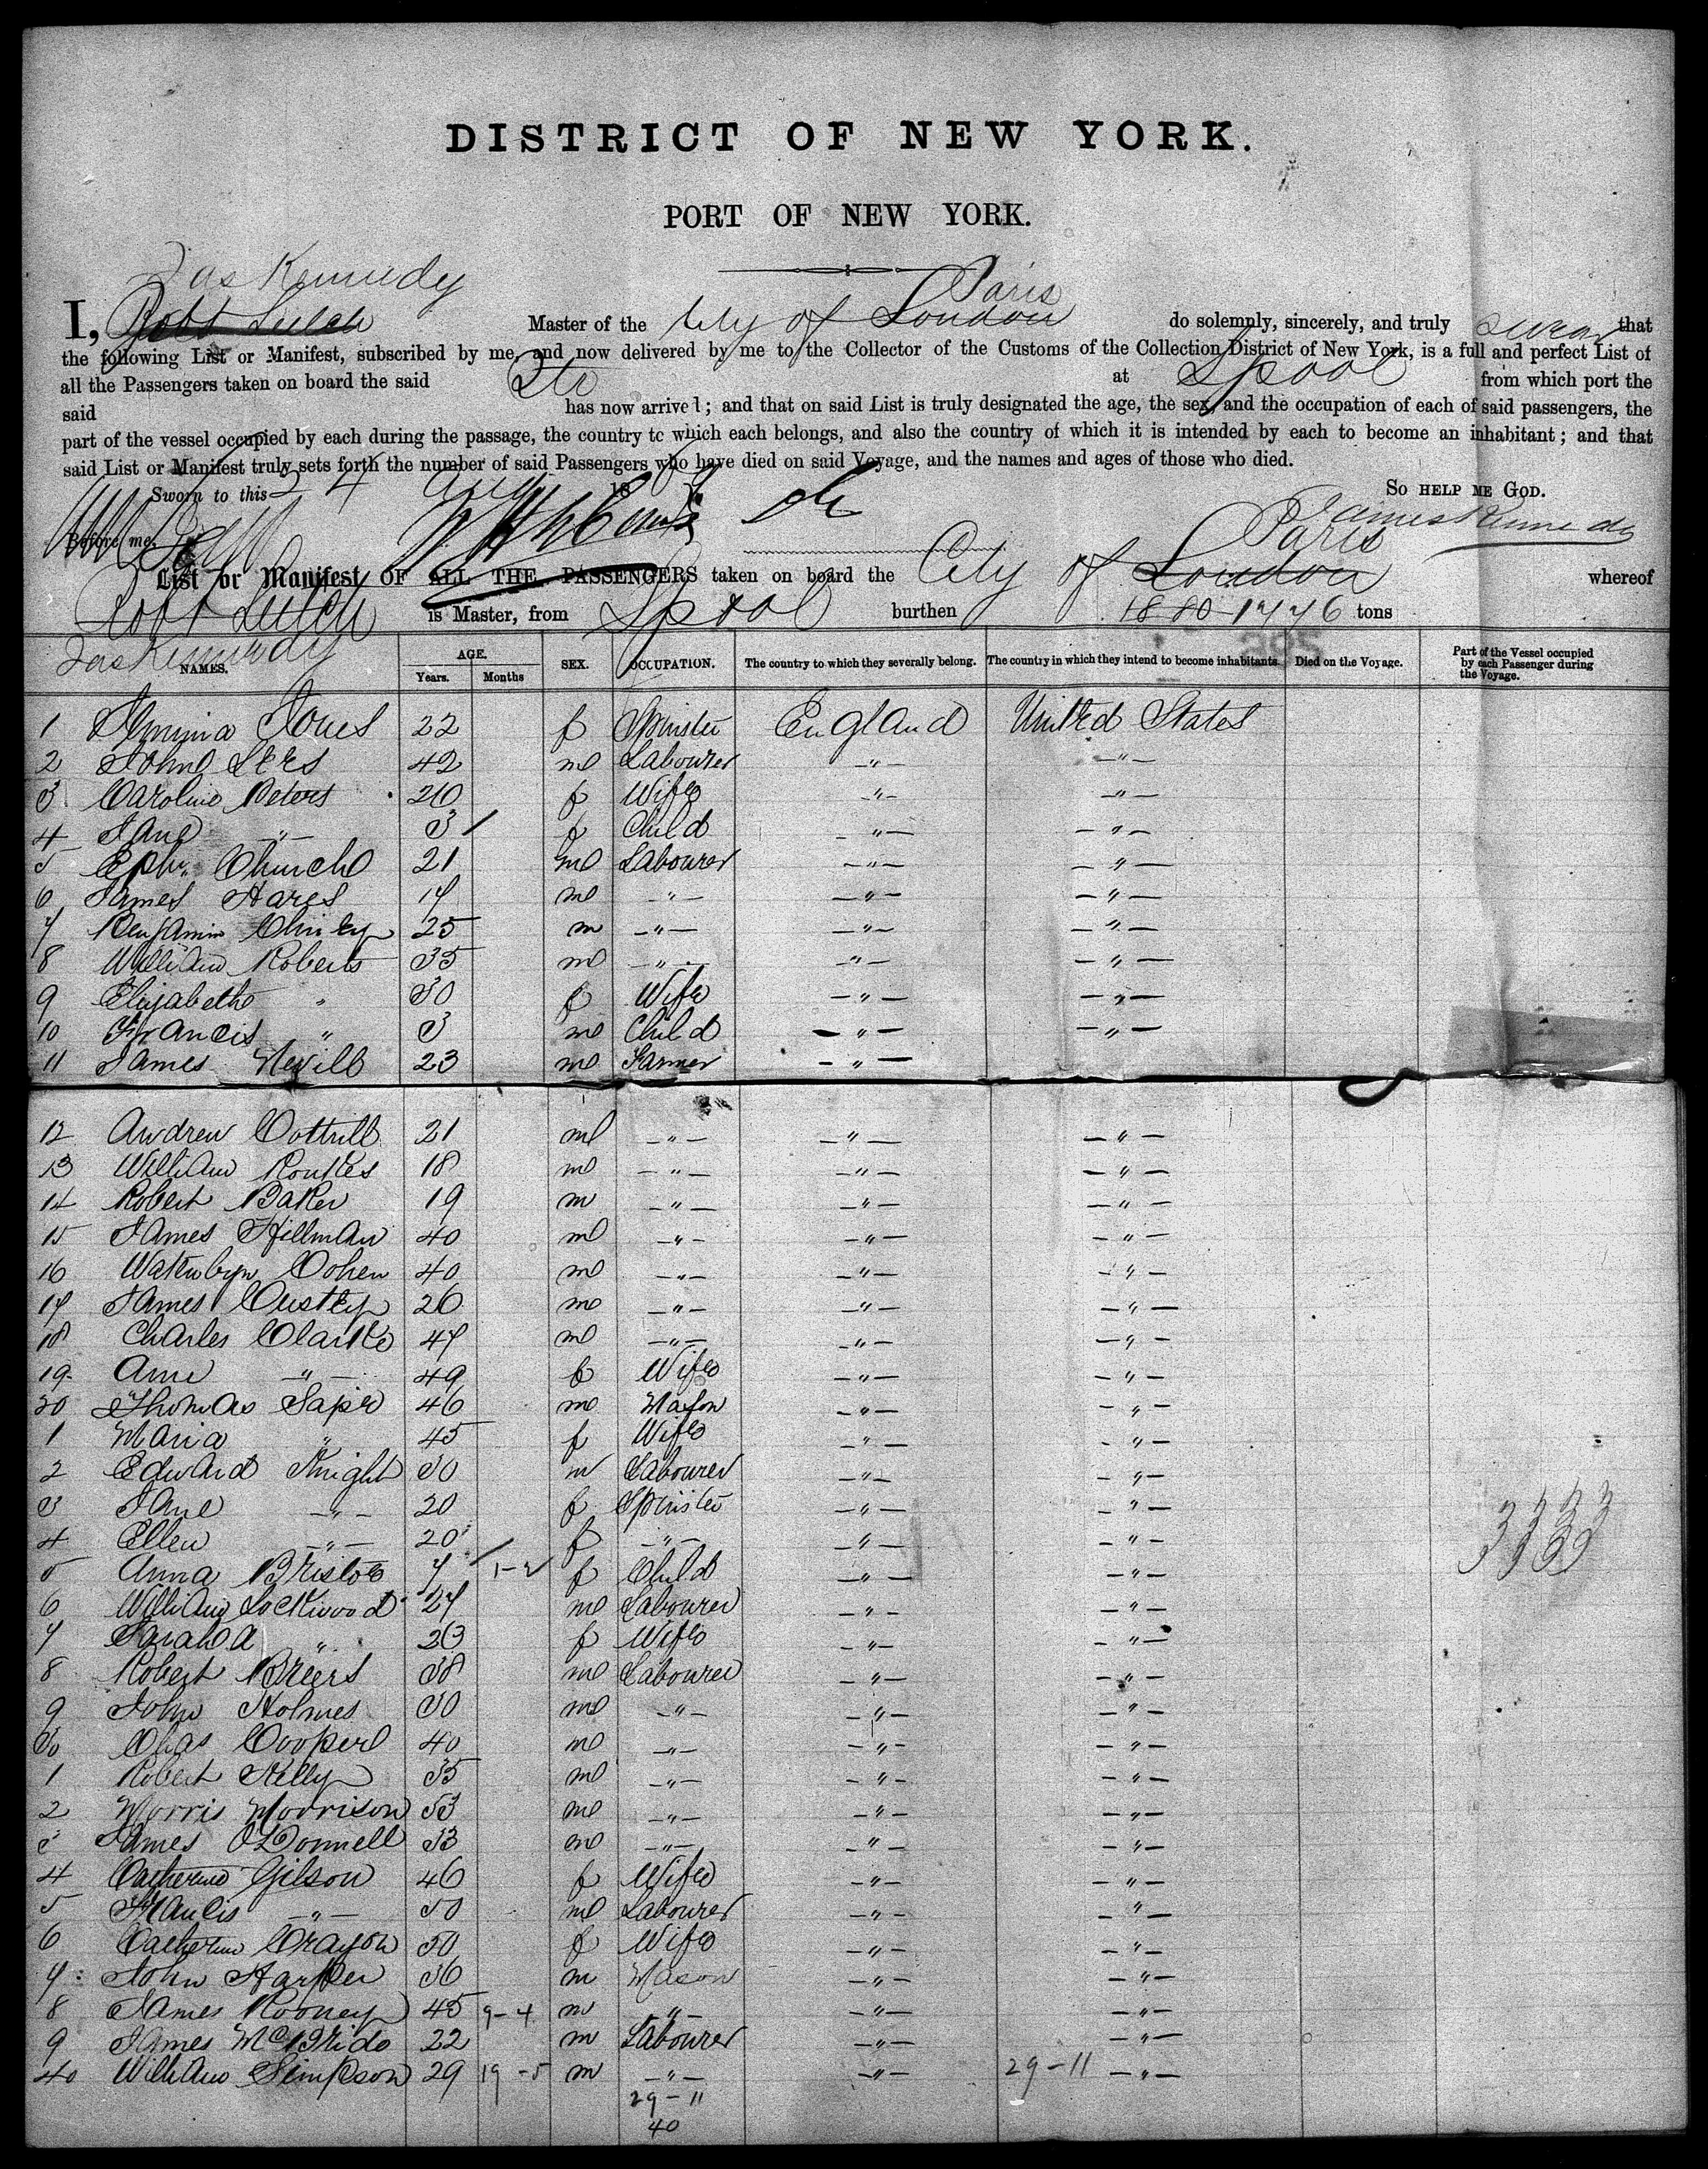 DISTRICT OF NEW YORK.
PORT OF NEW YORK.
Jas Kennedy
Paris
I, Robt Leitch Master of the City of London do solemnly, sincerely, and truly swear that
the following List or Manifest, subscribed by me, and now delivered by me to the Collector of the Customs of the Collection District of New York, is a full and perfect List of
all the Passengers taken on board the said Str at Lpool from which port the
said has now arrived; and that on said List is truly designated the age, the sex, and the occupation of each of said passengers, the
part of the vessel occupied by each during the passage, the country to which each belongs, and also the country of which it is intended by each to become an inhabitant; and that
said List or Manifest truly sets forth the number of said Passengers who have died on said Voyage, and the names and ages of those who died.
Sworn to this 24 Aug 18 SO HELP ME GOD.
James Kennedy
Before me,
Paris
List or Manifest OF ALL THE PASSENGERS taken on board the City of London whereof
Robt Leitch is Master, from Lpool burthen 1880 1776 tons
Jas Kennedy
NAMES. AGE. Years. Months SEX. OCCUPATION. The country to which they severally belong. The country in which they intend to become inhabitants. Died on the Voyage. Part of the Vessel occupied by each Passenger during the Voyage.
1 Jemima Jones 22 f Spinster England United States
2 John Lees 42 m Labourer -"- -"-
3 Caroline Peters 20 f Wife -"- -"-
4 Jane -"- 3 f Child -"- -"-
5 Ephm Church 21 m Labourer -"- -"-
6 James Hares 17 m -"- -"- -"-
7 Benjamin 25 m -"- -"- -"-
8 William Roberts 35 m -"- -"- -"-
9 Elizabeth " 30 f Wife -"- -"-
10 Francis " 3 m Child -"- -"-
11 James Nevill 23 m Farmer -"-
12 Andrew Cottrill 21 m -"- -"- -"-
13 William 18 m -"- -"- -"-
14 Robert Baker 19 m -"- -"- -"-
15 James Hillman 40 m -"- -"- -"-
16 Cohen 40 m -"- -"- -"-
17 James 26 m -"- -"- -"-
18 Charles Clarke 47 m -"- -"- -"-
19 Ann -"- 49 f Wife -"- -"-
20 Thomas 46 m Mason -"- -"-
1 Maria " 45 f Wife -"- -"-
2 Edward Knight 30 m Labourer -"- -"-
3 Jane -"- 20 f Spinster -"- -"-
4 Ellen -"- 20 f -"- -"- -"-
5 Anna Bristow 7 1-2 f Child -"- -"-
6 William Lockwood 27 m Labourer -"- -"-
7 Sarah A " 23 f Wife -"- -"-
8 Robert Breers 38 m Labourer -"- -"-
9 John Holmes 30 m -"- -"- -"-
30 Chas Cooper 40 m -"- -"- -"-
1 Robert Kelly 35 m -"- -"- -"-
2 Morris Morrison 33 m -"- -"- -"-
3 James O'Donnell 33 m -"- " -"-
4 Catherine Gilson 46 f Wife -"- -"-
5 Francis -"- 50 m Labourer -"- -"-
6 Catherine Crayon 30 f Wife -"- -"-
7 John Harper 36 m Mason -"- -"-
8 James Rooney 45 9-4 m -"- -"- -"-
9 James McBride 22 m Labourer -"- -"-
40 William Simpson 29 19-5 m -"- -"- 29-11 -"-
29-11
40
3333